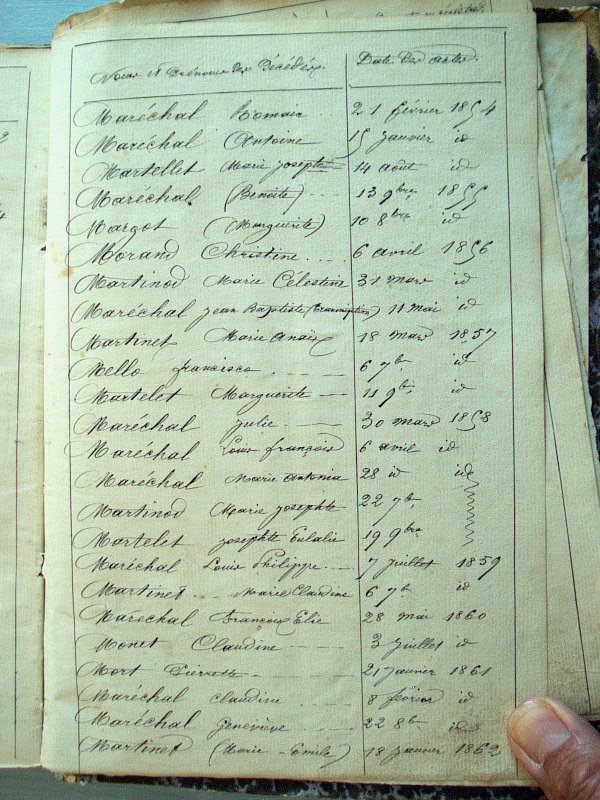 Noms et Prénoms des Décédés. Date des actes.
Maréchal Romain 21 février 1854
Maréchal Antoine 15 janvier id
Martellet Marie Josephte 14 août id
Maréchal (Benoite) - - - 13 9bre 1855
Margot (Marguerite) 10 8bre id
Morand Christine . . . 6 avril 1856
Martinod Marie Célestine 31 mars id
Maréchal jean Baptiste (Transcription) 11 mai id
Martinet Marie Anaïs 18 mars 1857
Mello francisco . - - - 6 7b. id
Martelet Marguerite - - 11 9b. id
Maréchal julie - - - 30 mars 1858
Maréchal Louis françois 6 avril id
Maréchal Marie Antonia 28 id id
Martinod Marie josephte 22 7b.
Martelet josephte Eulalie 19 9bre
Maréchal Louis Philippe - - 7 juillet 1859
Martinet - - Marie Claudine 6 7b id
Maréchal François Elie 28 mai 1860
Monet Claudine - - - - 3 juillet id
Mort Pierrette - - - - 21 janvier 1861
Maréchal claudine . . . 8 février id
Maréchal Geneviève - - - 22 8b. id
Martinet (Marie - Emilie) 18 janvier 1862